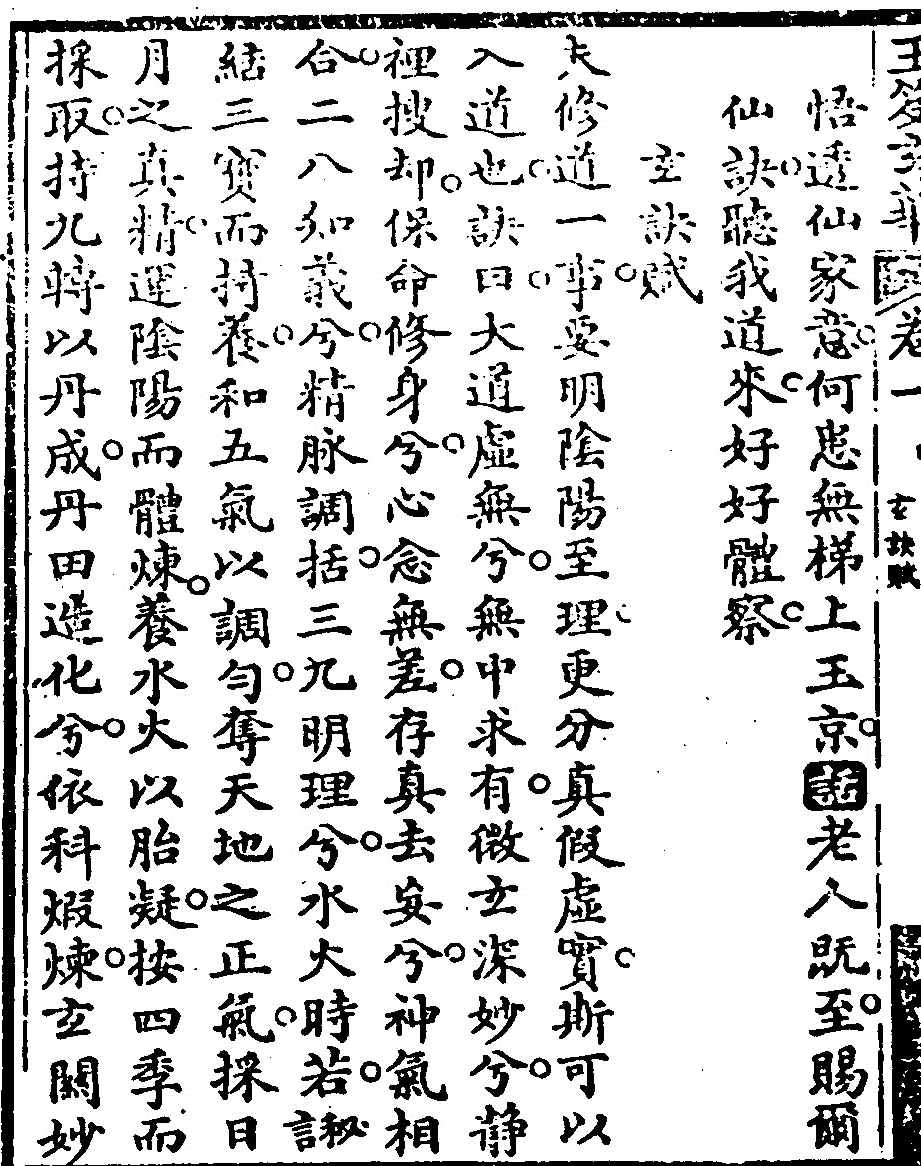 悟透仙家意○何患無梯上玉京○話老人既至○賜爾
仙訣○聽我道來○好好體察○
玄訣賦
夫修道一事○要明陰陽至理○更分真假虛實○斯可以
入道也○訣曰○大道虛無兮○無中求有○微玄深妙兮○静
裡搜却○保命修身兮○心念無差○存真去妄兮○神氣相
合○二八知義兮○精脉調括○三九明理兮○水火時若○謝
結三寶而持養○和五氣以調勻○奪天地之正氣○採日
月之真精○運陰陽而體煉○養水火以胎凝○按四季而
採取○持九轉以丹成○丹田造化兮○依科煆煉○玄關妙
卷一
玄訣賦